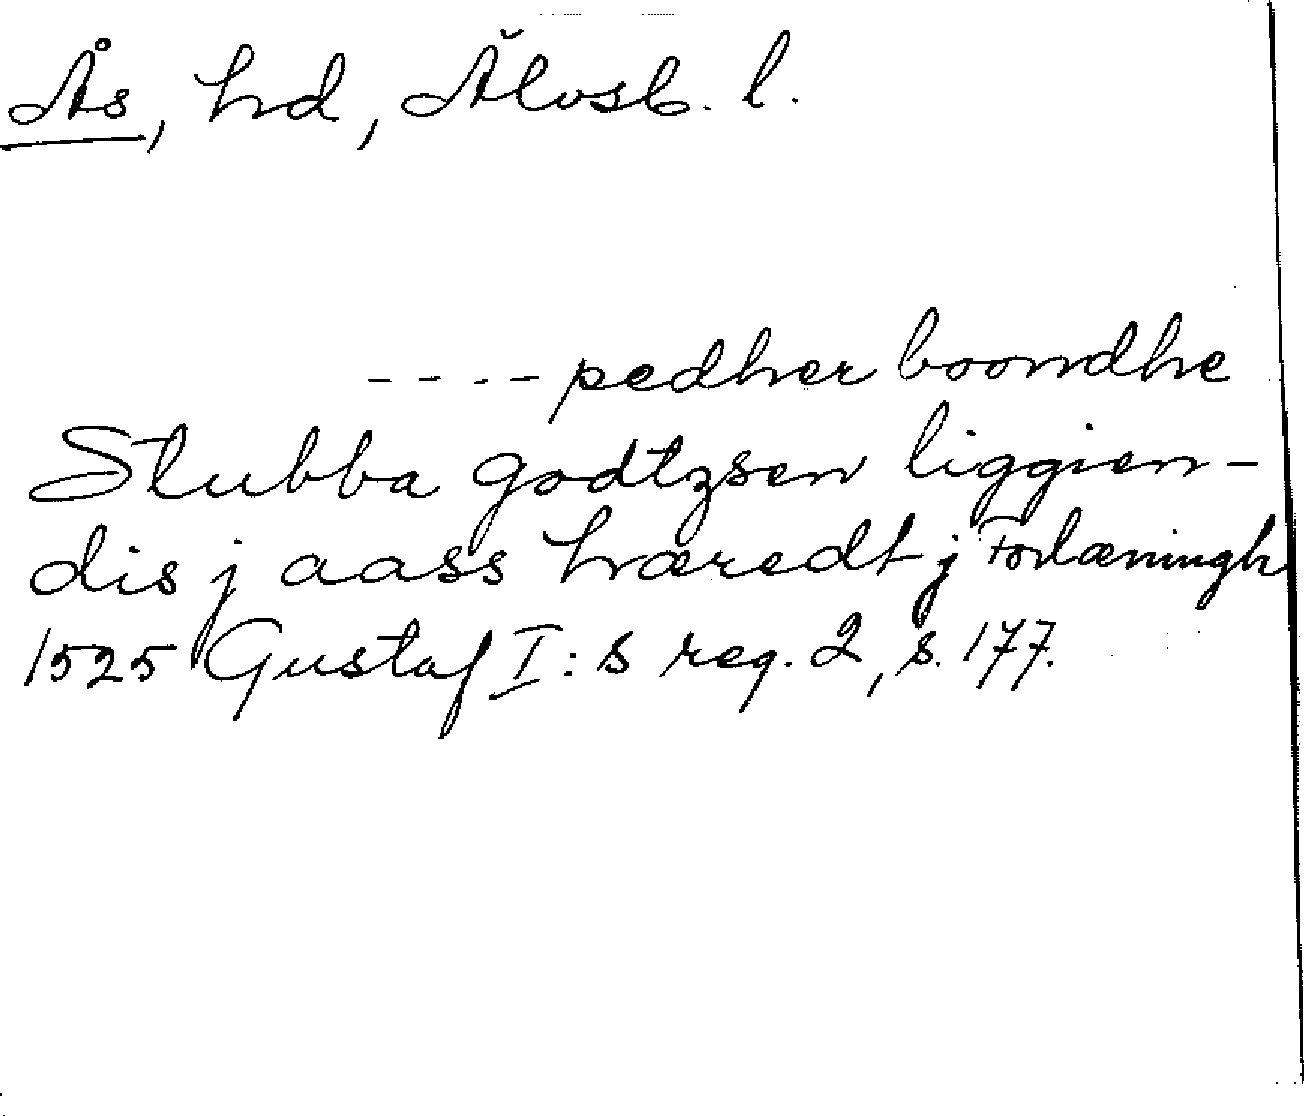 Ås, hd, Älvsb. l.
---- pedher boondhe
Stubba godtzsen liggien-
dis j aass hæredt j Forlæningh
1525 Gustaf I:s reg. 2, s. 177.